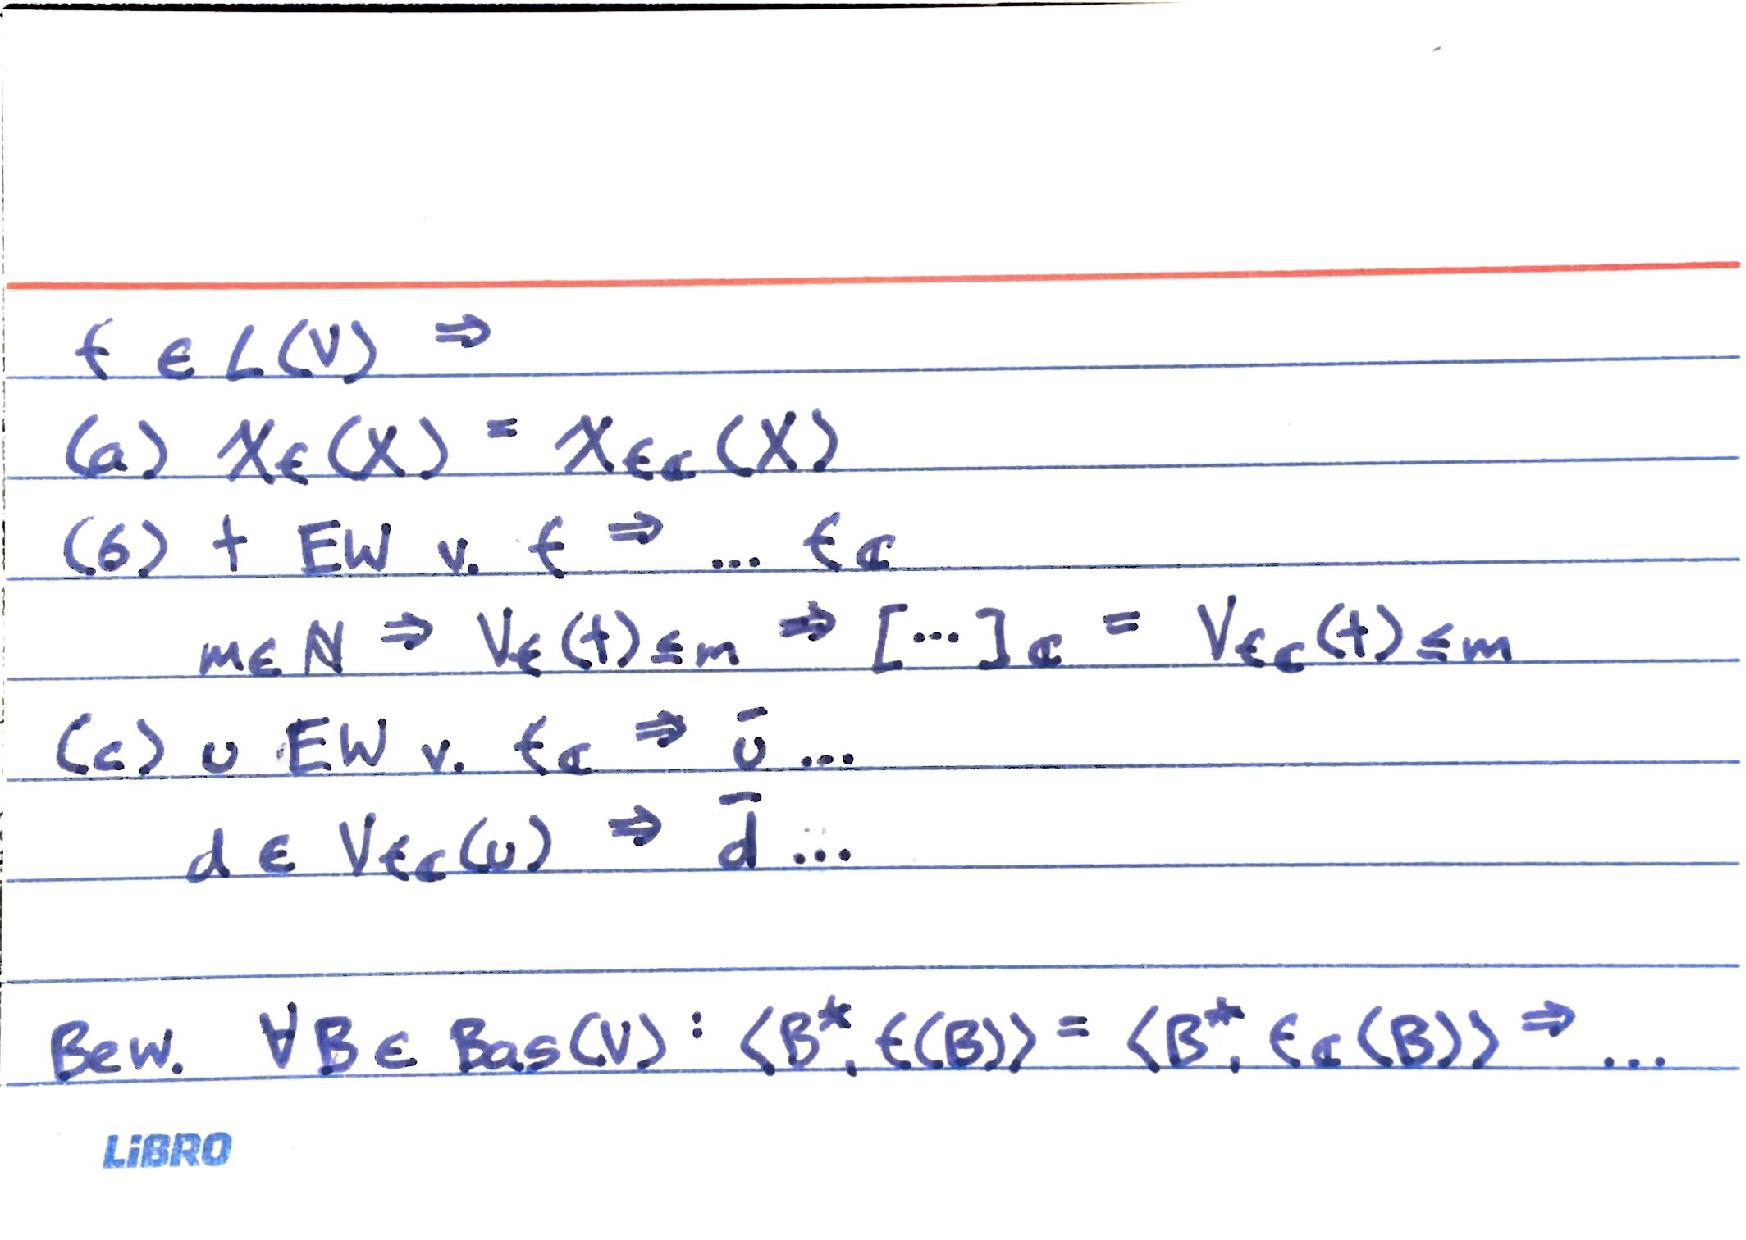 f ∈ L(V) ⇒
(a) χ_f(X) = χ_{f_ℂ}(X)
(b) t EW v. f ⇒ ... f_ℂ
m ∈ ℕ ⇒ V_f(t)_{≤m} ⇒ [...]_ℂ = V_{f_ℂ}(t)_{≤m}
(c) u EW v. f_ℂ ⇒ ū ...
d ∈ V_{f_ℂ}(u) ⇒ d̄ ...
Bew. ∀B ∈ Bas(V): ⟨B*, f(B)⟩ = ⟨B*, f_ℂ(B)⟩ ⇒ ...
LiBRO